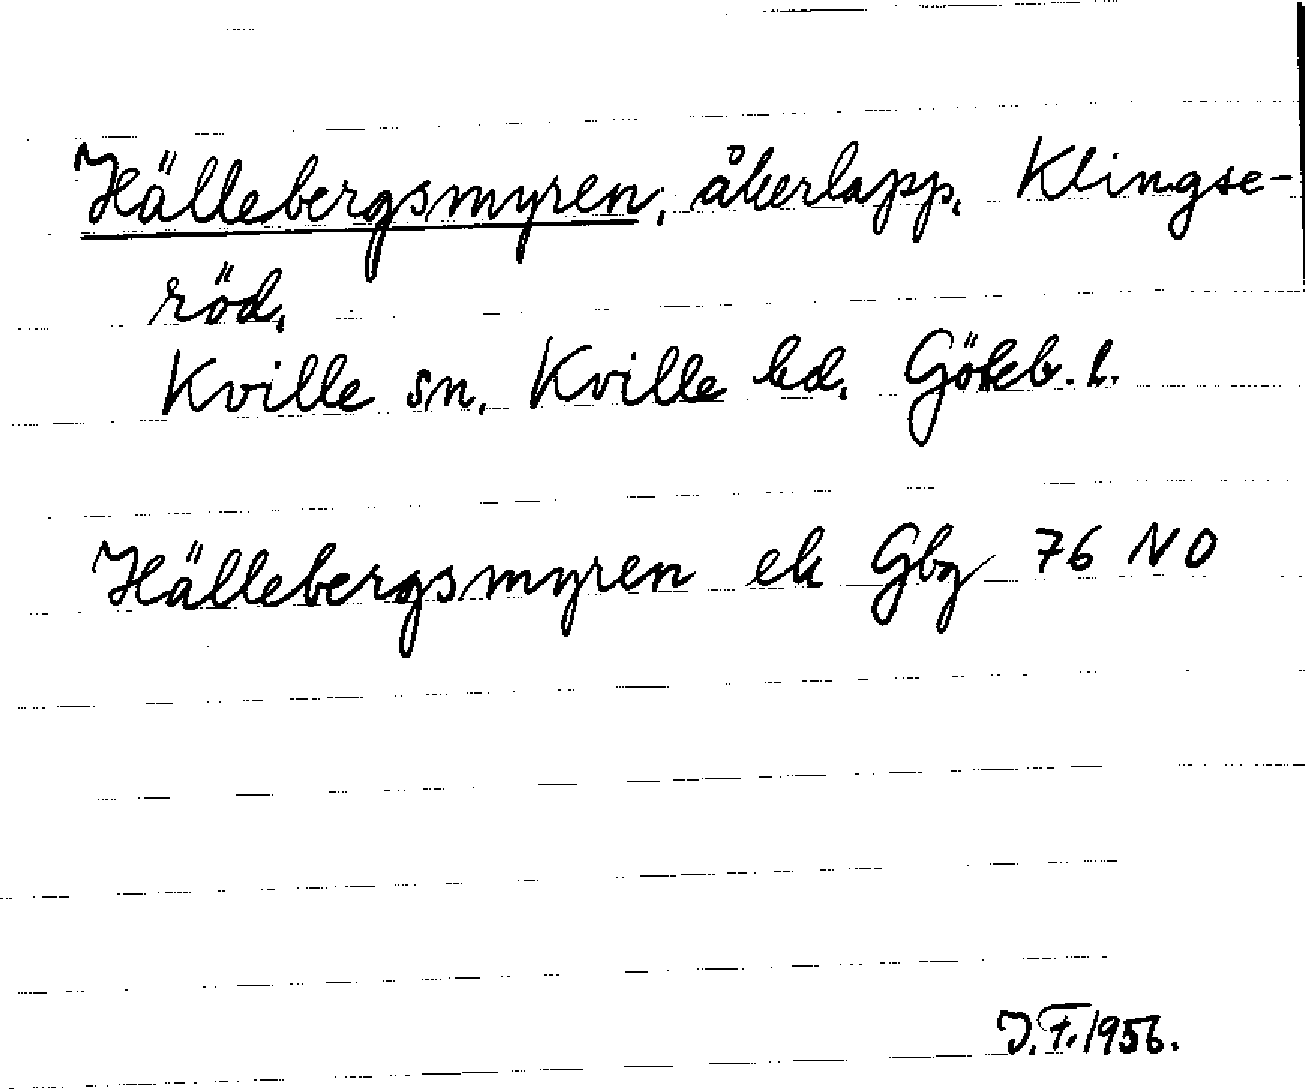 Hällebergsmyren, åkerlapp, Klingse-
röd,
Kville sn, Kville hd. Göteb. l.
Hällebergsmyren ek Gbg 76 NO
J.F. 1956.